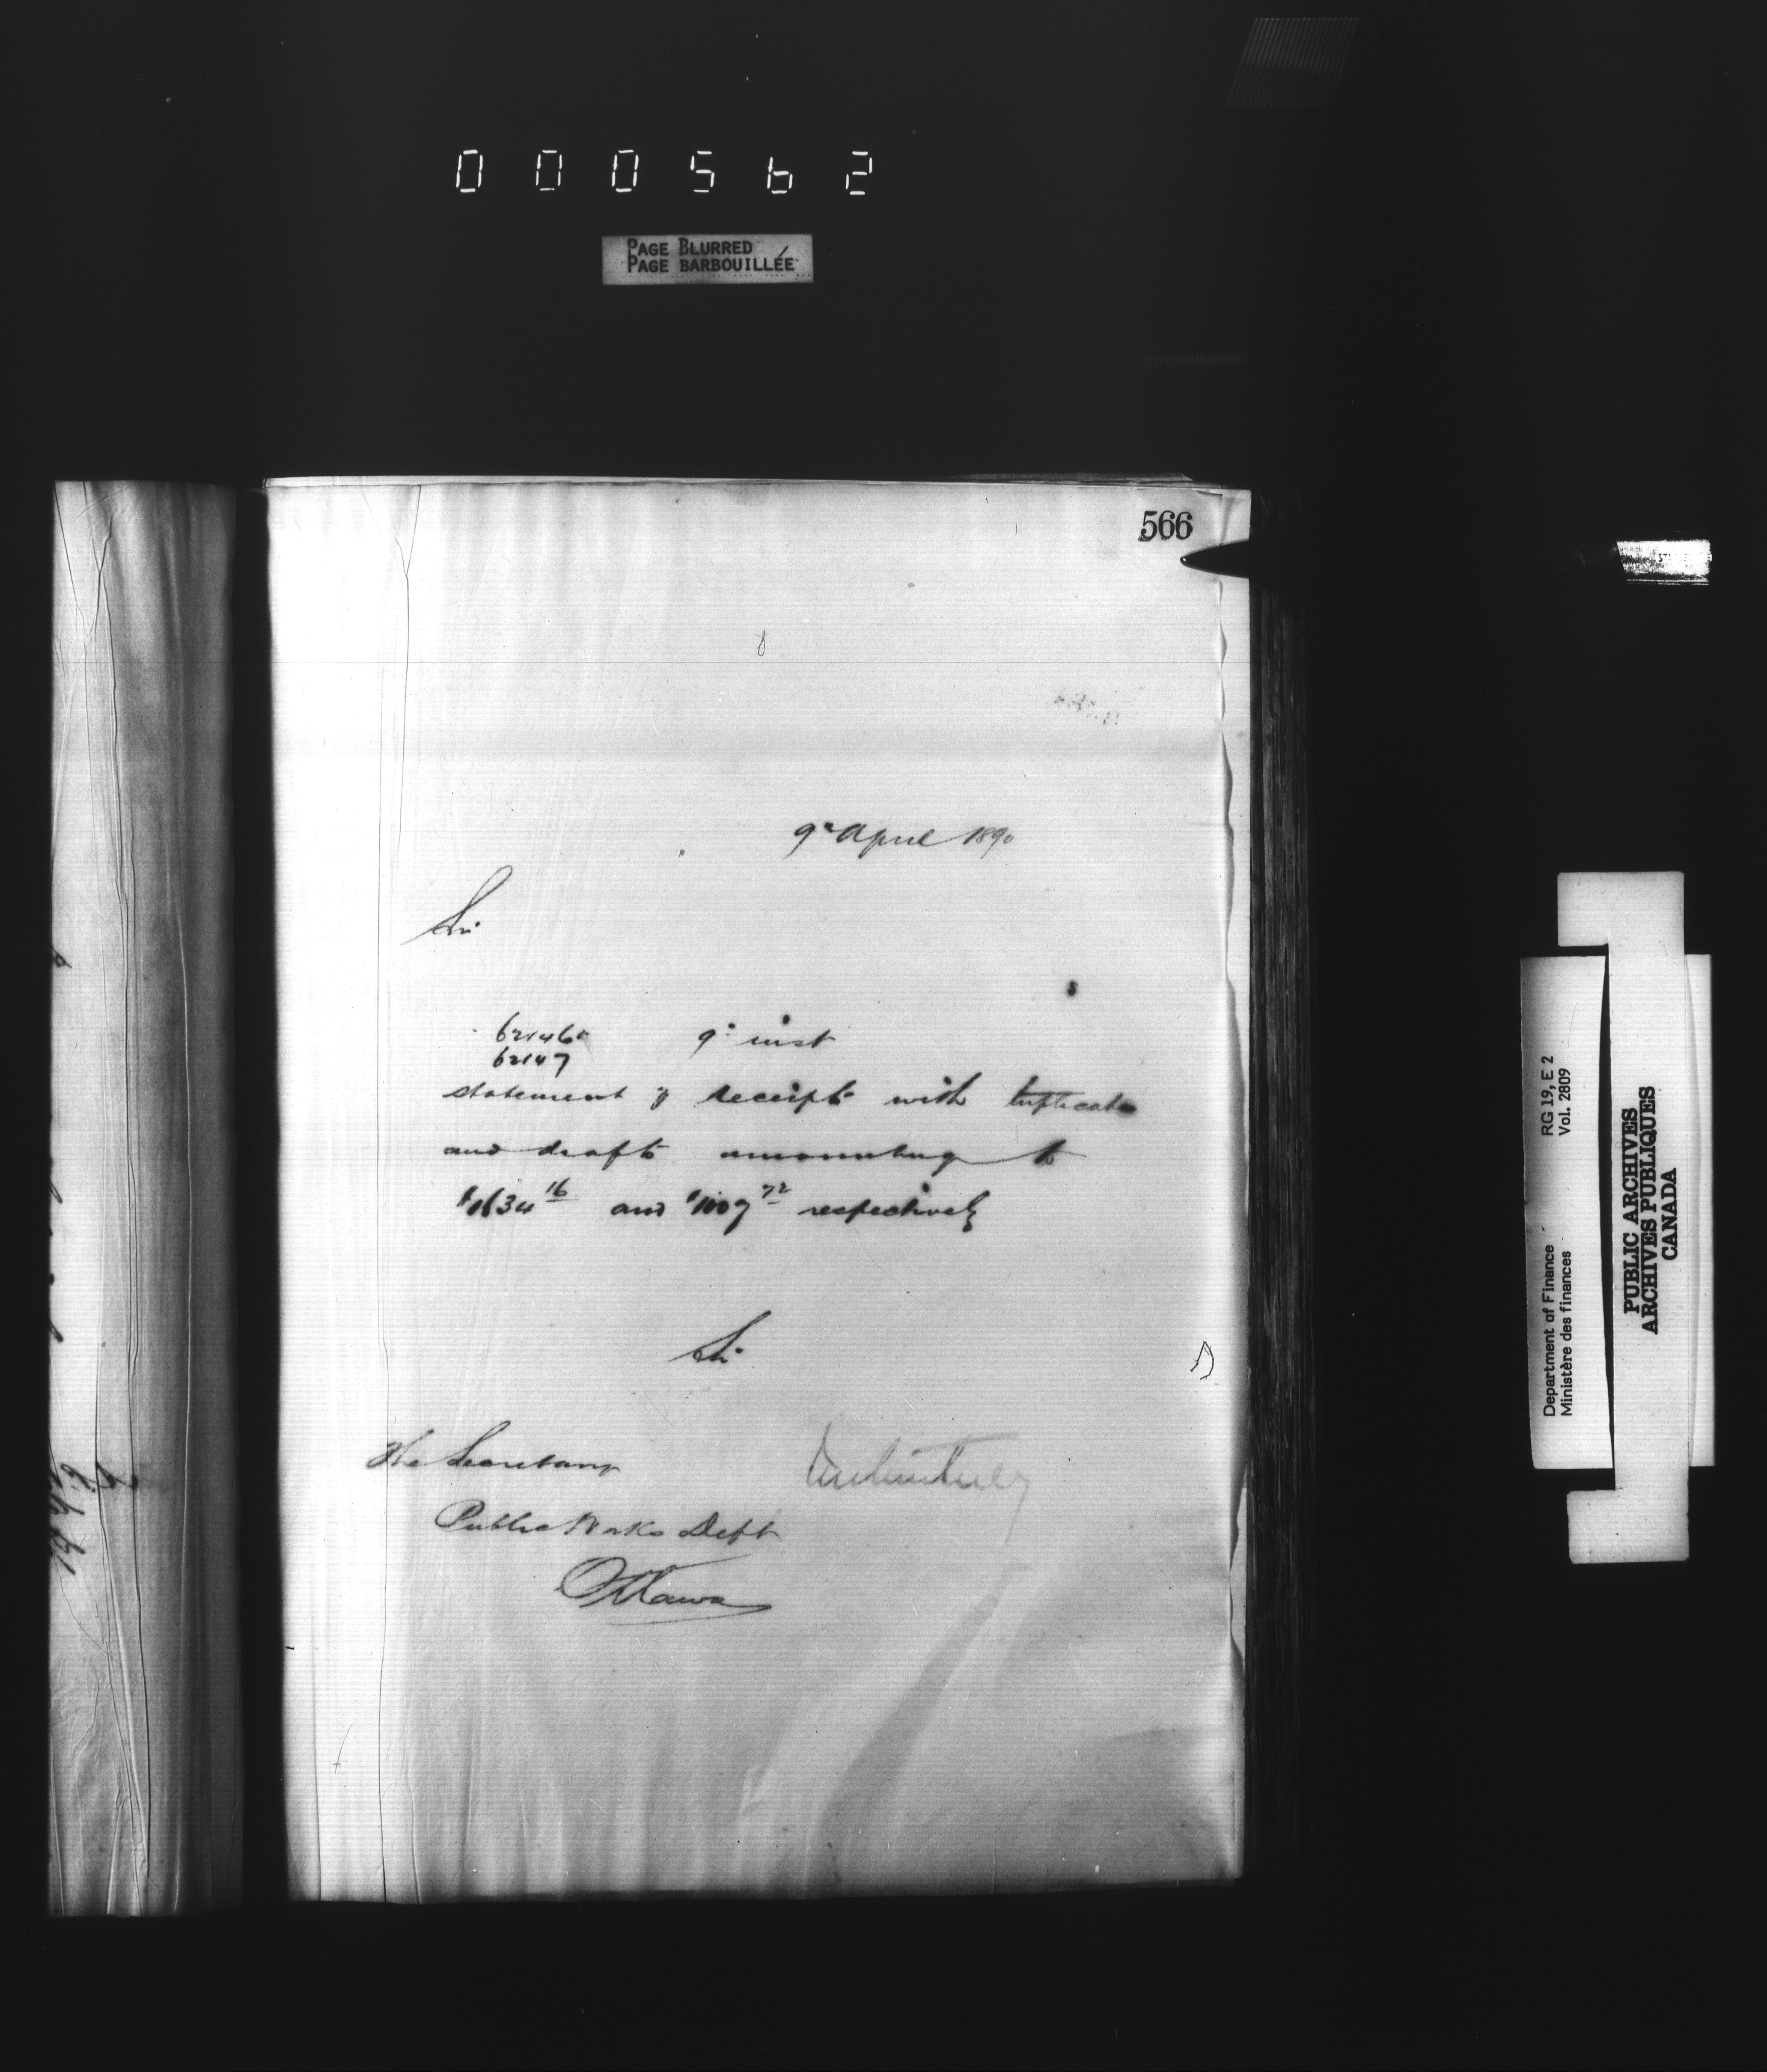 000562
PAGE BLURRED
PAGE BARBOUILLÉE
566
9th April 1890
Sir
62146 9th inst
62147
statement of receipts with triplicate
and drafts amounting to
$1634 16 and $1007 72 respectively
Sir
The Secretary
Public Works Dept
Ottawa
Department of Finance RG 19, E 2
Ministère des finances Vol. 2809
PUBLIC ARCHIVES
ARCHIVES PUBLIQUES
CANADA